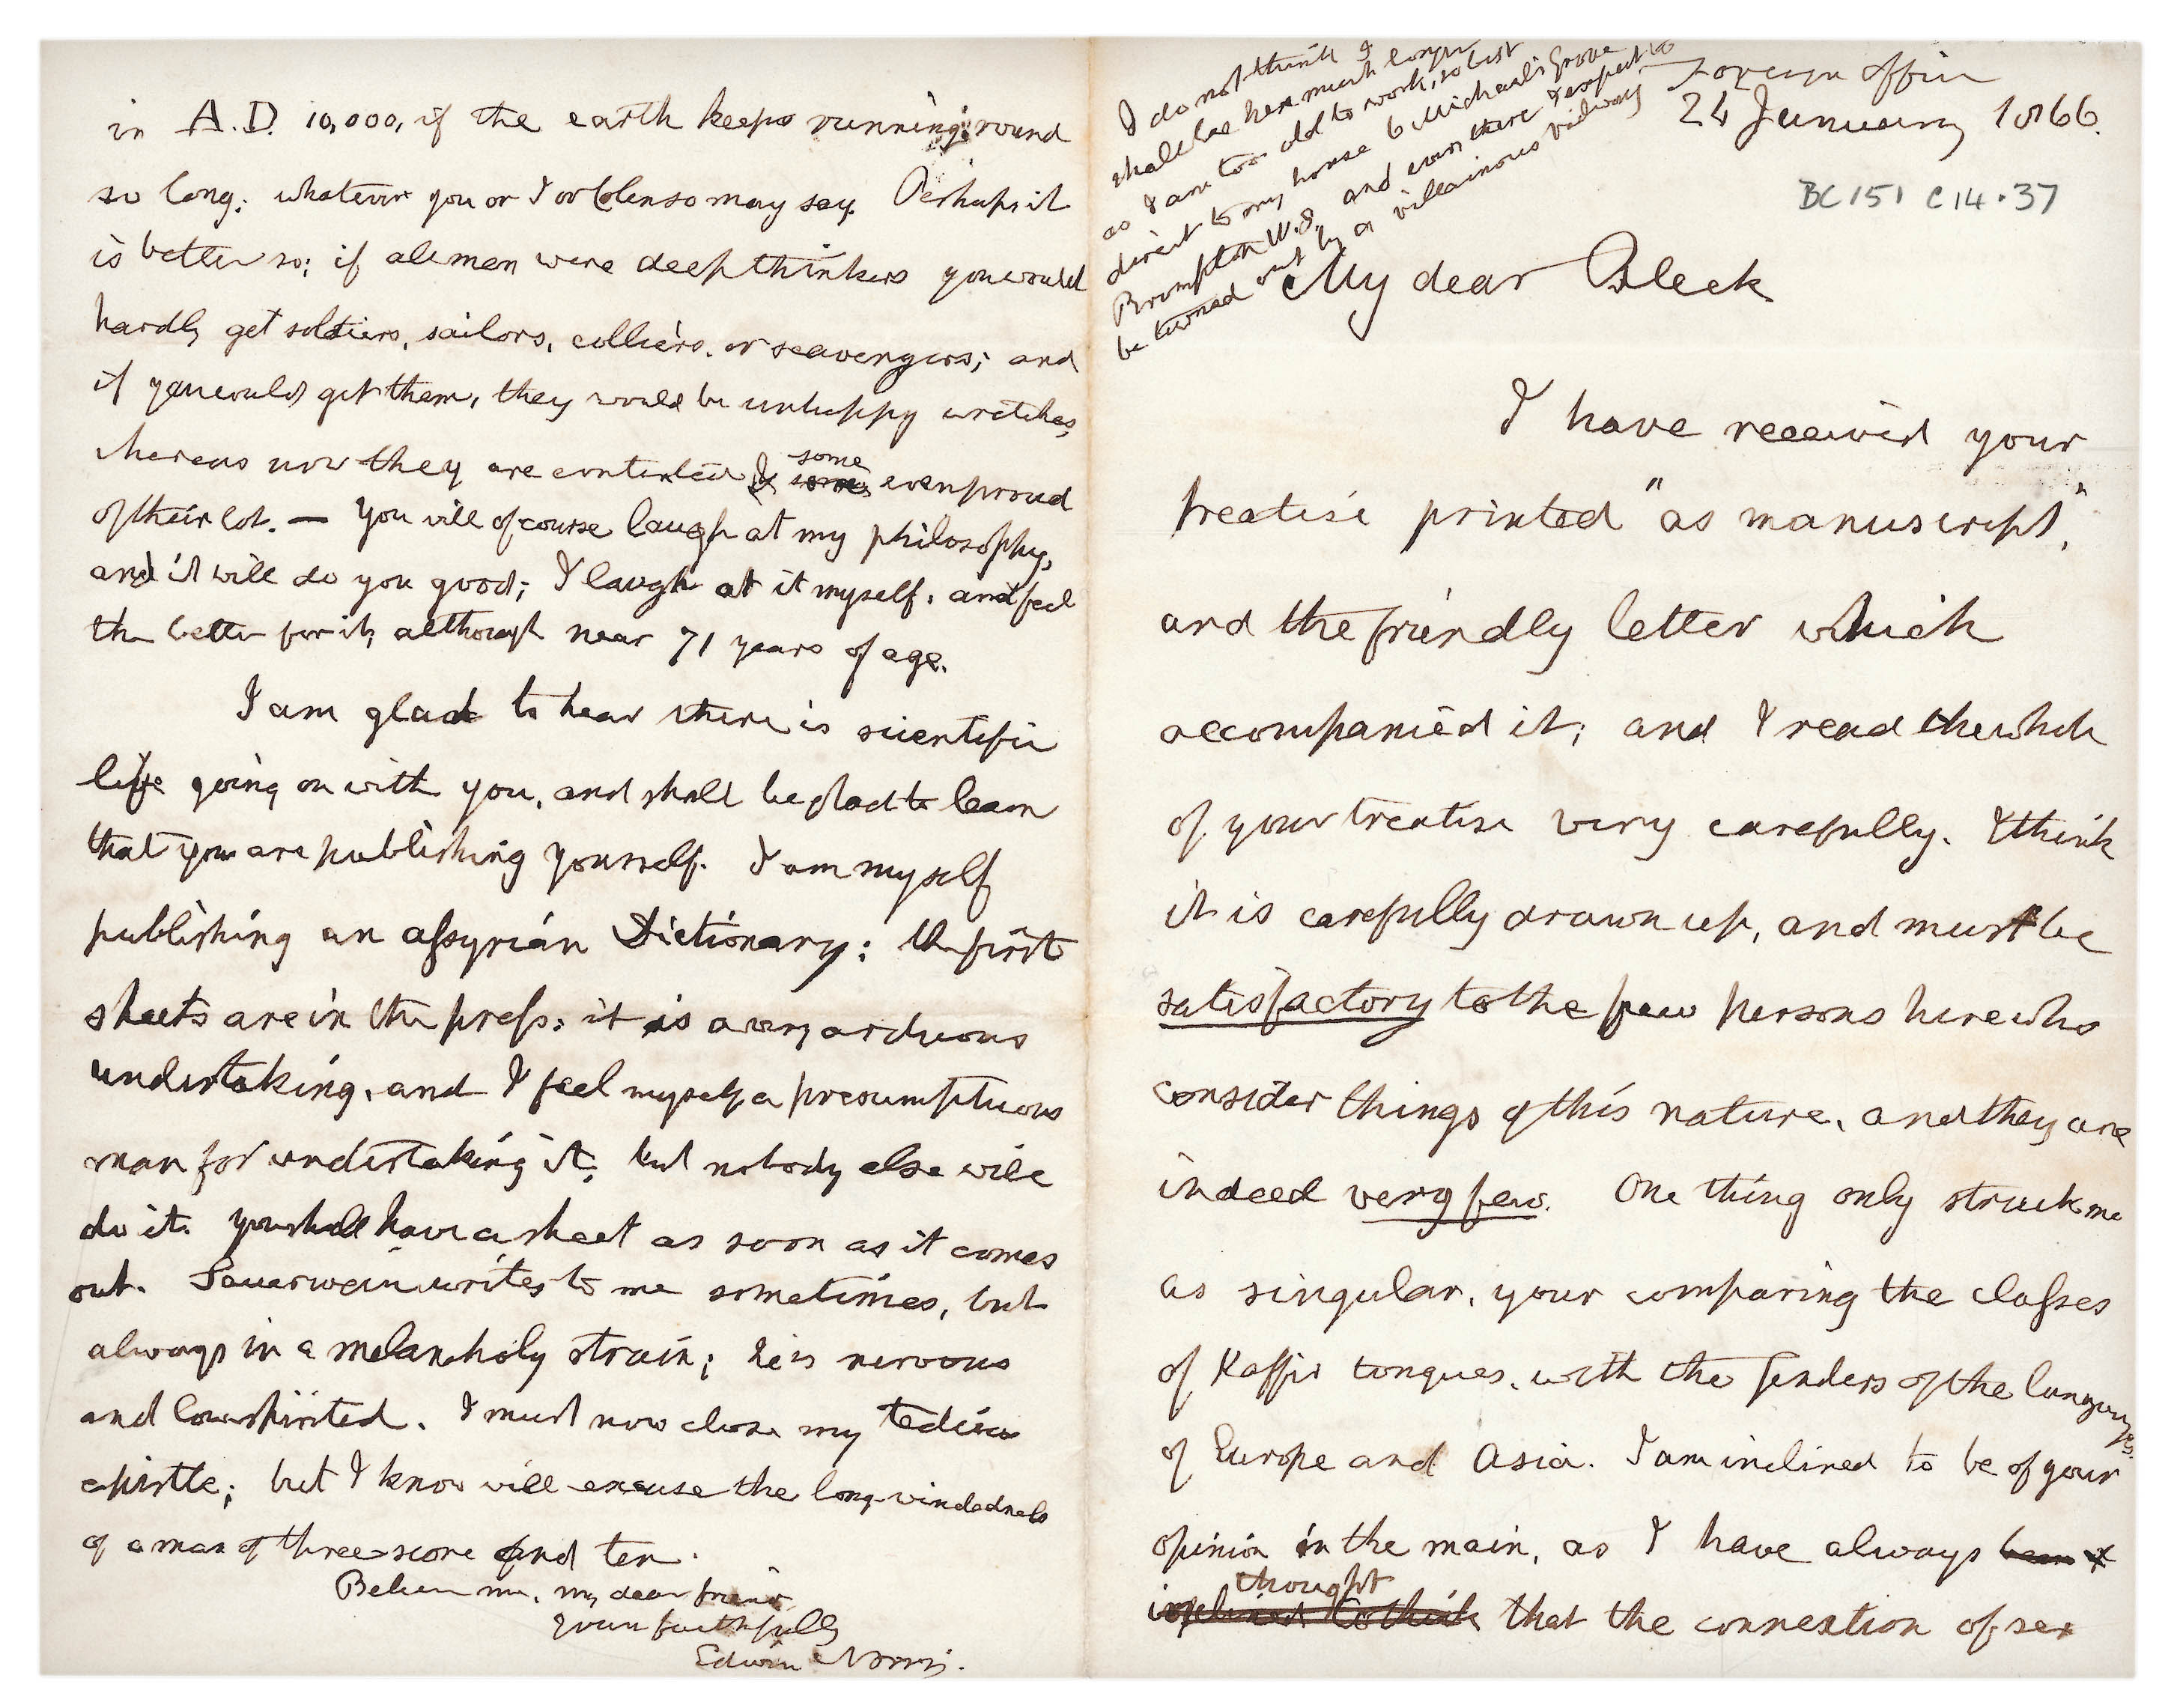 I do not think I
shall be here much longer
as I am too old to work, so best
direct to my house 6 Michael's Grove
Brompton W.S. and even there I expect to
be turned out by a villainous railway
Foreign Office
24 January 1866.
BC 151 C14.37
My dear Bleek
I have received your
treatise printed "as manuscript",
and the friendly letter which
accompanied it; and I read the whole
of your treatise very carefully. I think
it is carefully drawn up, and must be
satisfactory to the few persons here who
consider things of this nature, and they are
indeed very few. One thing only struck me
as singular, your comparing the classes
of Kaffir tongues, with the genders of the languages
of Europe and Asia. I am inclined to be of your
opinion in the main, as I have always been
thought
inclined to think that the connextion of sex
in A.D. 10,000, if the earth keeps running round
so long; whatever you or I or Colenso may say. Perhaps it
is better so; if all men were deep thinkers you would
hardly get soldiers, sailors, colliers, or scavengers; and
if you could get them, they would be unhappy wretches,
whereas now they are contented & some even proud
of their lot. — You will of course laugh at my philosophy,
and it will do you good; I laugh at it myself, and feel
the better for it, although near 71 years of age.
I am glad to hear there is scientific
life going on with you, and shall be glad to learn
that you are publishing yourself. I am myself
publishing an Assyrian Dictionary: the first
sheets are in the press; it is a very arduous
undertaking, and I feel myself a presumptuous
man for undertaking it; but nobody else will
do it. You shall have a sheet as soon as it comes
out. Sauerwein writes to me sometimes, but
always in a melancholy strain; he is nervous
and lowspirited. I must now close my tedious
epistle; but I know will excuse the long-windedness
of a man of three score and ten.
Believe me, my dear friend,
yours faithfully
Edwin Norris.